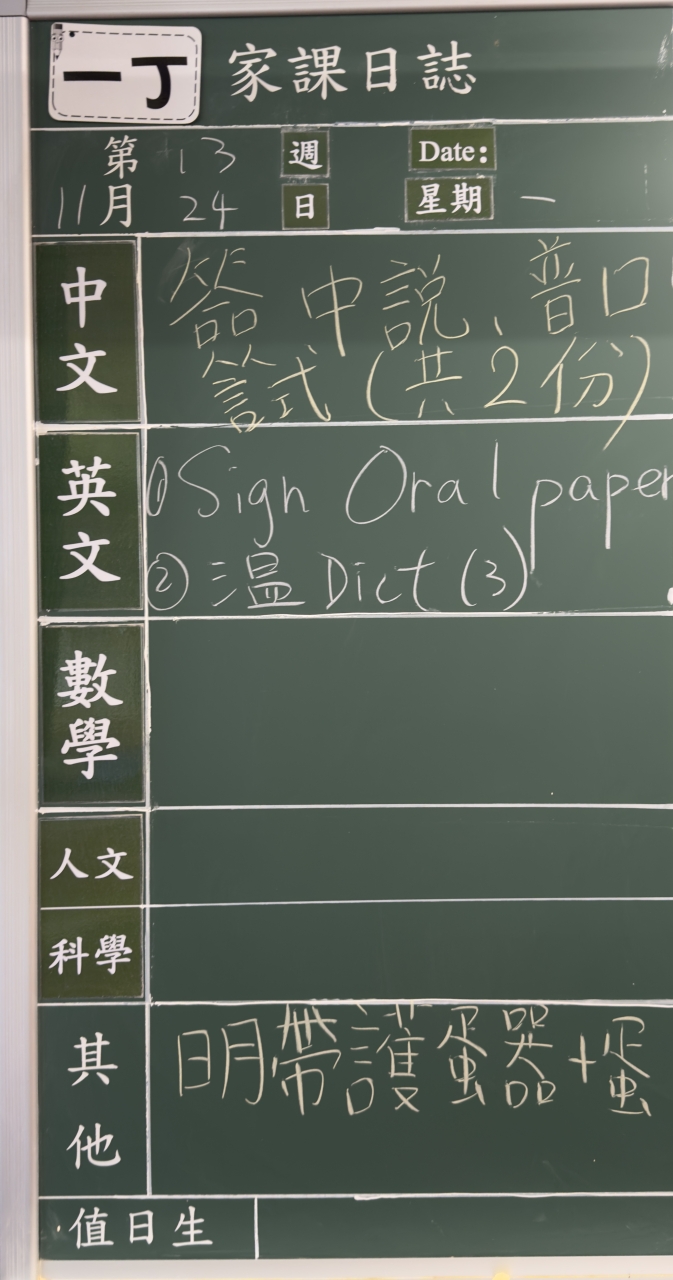 一丁 家課日誌
第 13 週 Date:
11月 24 日 星期 一
中文 簽 中說、普口
試 (共2份)
英文 ① Sign Oral paper
② 溫 Dict (3)
數學
人文
科學
其他 明帶護蛋器+蛋
值日生